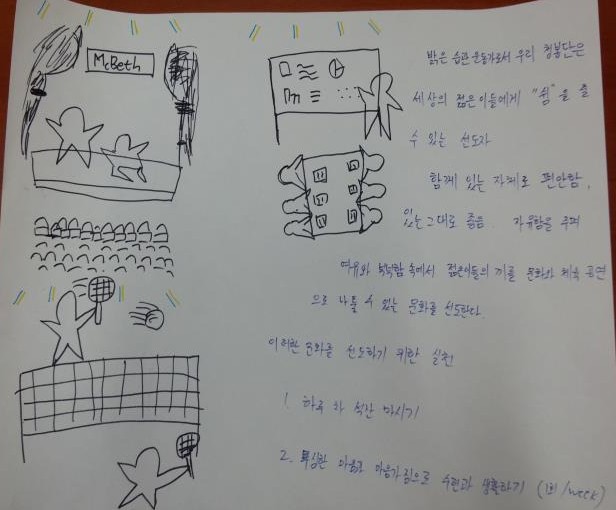 McBeth
밝은 습관 운동가로서 우리 청봉단은
세상의 젊은이들에게 "쉼"을 줄
수 있는 선도자
함께 있는 자체로 편안함,
있는 그대로 좋음 자유함을 주며
여유와 넉넉함 속에서 젊은이들의 끼를 문화와 체육 공연
으로 나눌 수 있는 문화를 선도한다.
이러한 문화를 선도하기 위한 실천
1 하루 한 석잔 마시기
2. 마음과 마음가짐으로 수련과 생활하기 (1회/week)